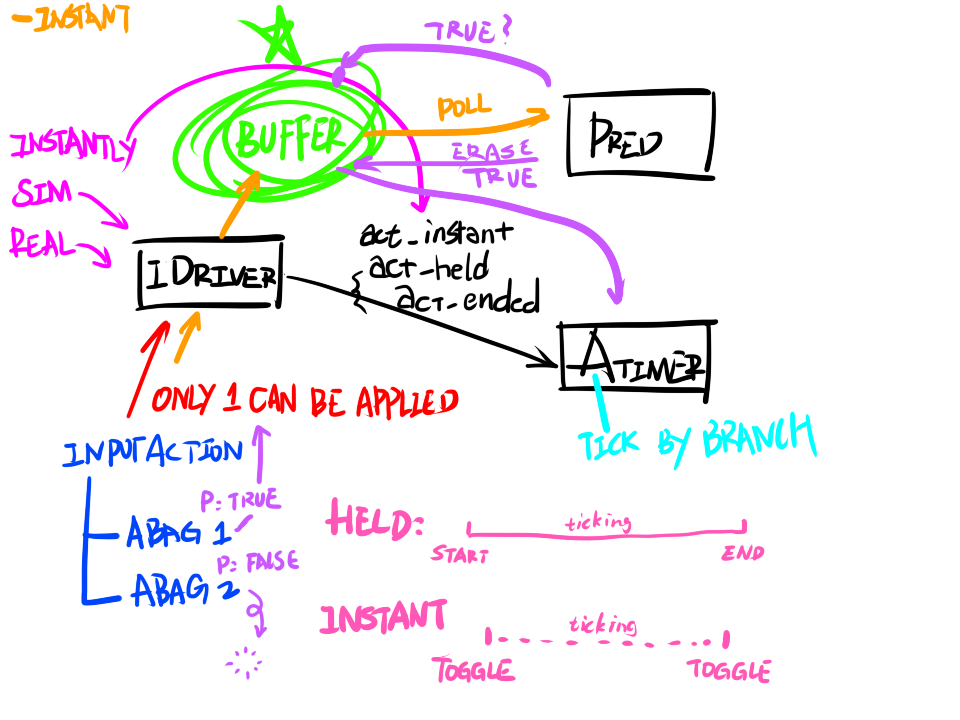 - INSTANT
TRUE?
POLL
BUFFER
PRED
ERASE
TRUE
INSTANTLY
SIM
REAL
act_instant
act_held
act_ended
IDRIVER
ATIMER
ONLY 1 CAN BE APPLIED
TICK BY BRANCH
INPUTACTION
P: TRUE
ABAG 1
P: FALSE
ABAG 2
HELD:
ticking
START
END
INSTANT
ticking
TOGGLE
TOGGLE